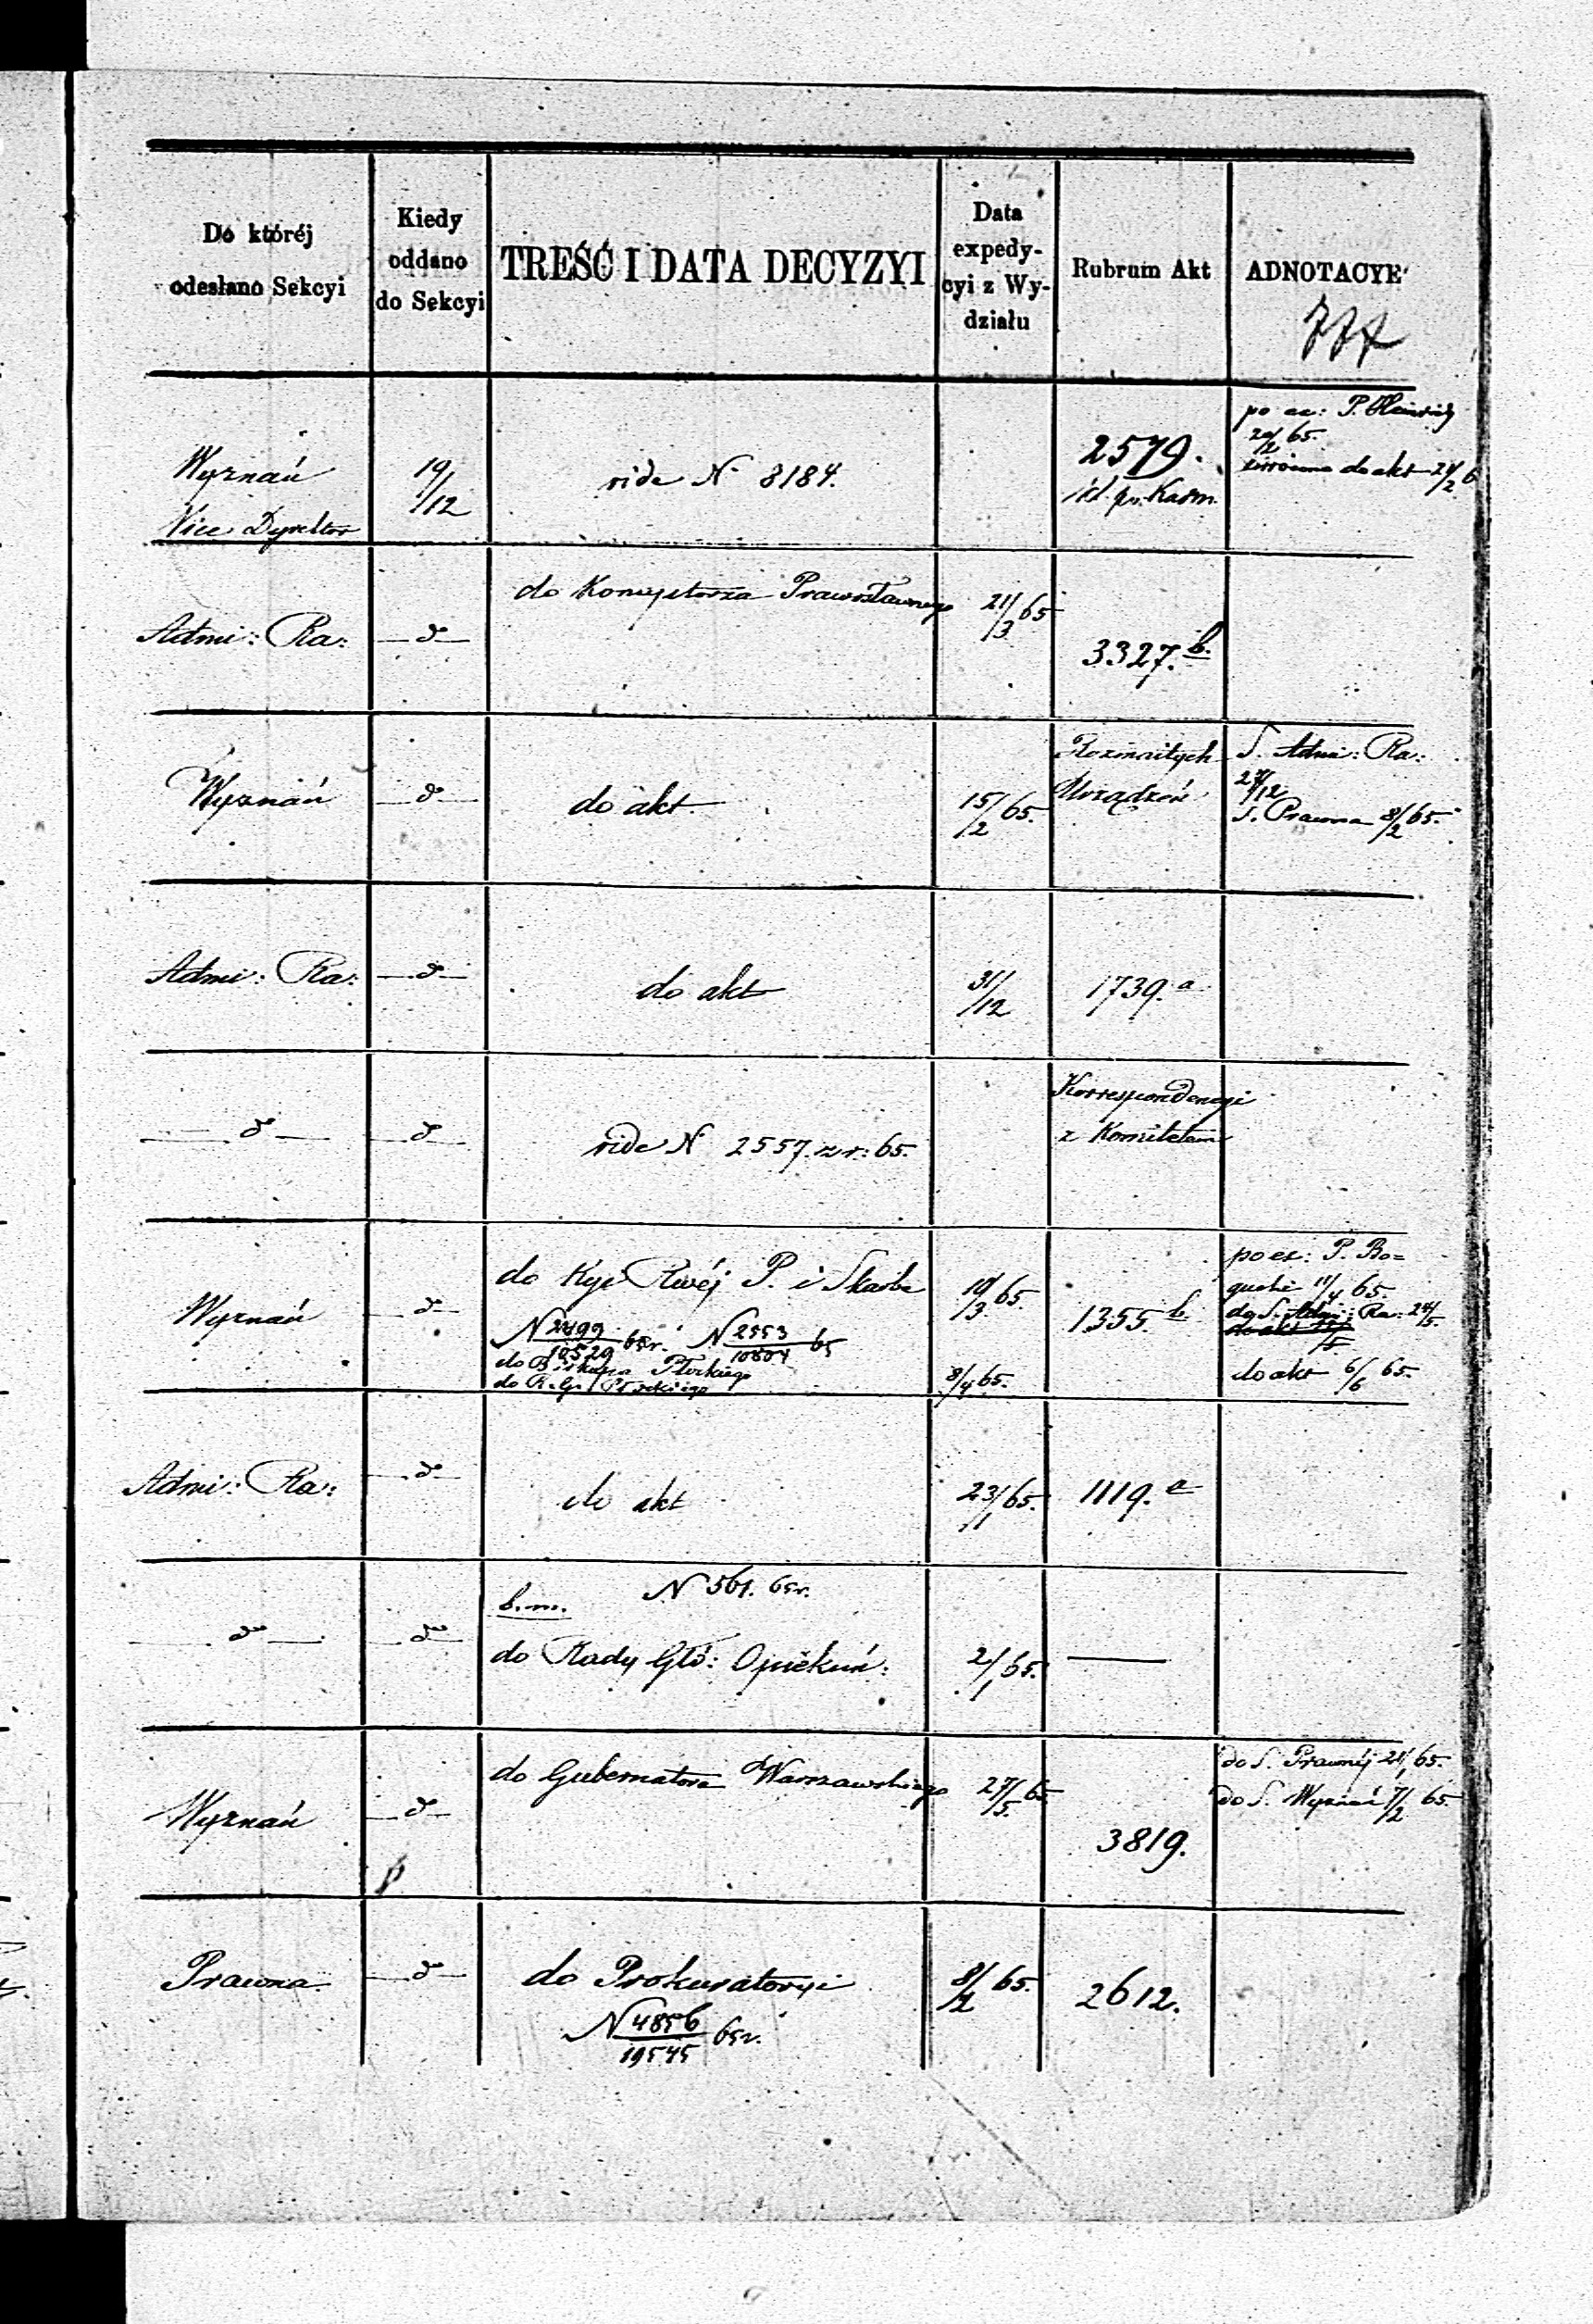 Do któréj
odesłano Sekcyi
Kiedy
oddano
do Sekcyi
TREŚĆ I DATA DECYZYI
Data
expedy-
cyi z Wy-
działu
Rubrum Akt
ADNOTACYE
Wyznań
Vice Dyrektor
19/12
vide N 8184.
2579.
po ex: P.
20/2 65.
do akt 24/2 6
Admi: Ra:
—d—
do Konsystorza Prawosławnego
21/3 65
3327. b.
Wyznań
—d—
do akt
15/2 65.
Rozmaitych
Urządzeń
S. Admi: Ra:
27/12
S. Prawna 8/2 65.
Admi: Ra:
—d—
do akt
31/12
1739. a
—d—
—d—
vide N 2557. z r: 65.
Korrespondencyi
z Komitetem
Wyznań
—d—
do Kyi Rwéj P. i Skarbu
N 2499/10529 65 r. N 2553/10804 65
do Biskupa Płockiego
do R. G. Płockiego
19/3 65.
8/4 65.
1355. b
po ex: P. Bo=
guckie 11/4 65.
do S. Admi: Ra: 24/5.
do akt 6/6 65.
Admi: Ra:
—d—
do akt
23/1 65.
1119. a
—d—
—d—
b. m. N 561. 65 r.
do Rady Głó: Opiekuń:
2/1 65.
—
Wyznań
—d—
do Gubernatora Warszawskiego
27/5 65.
3819.
do S. Prawnéj 21/1 65.
do S. Wyznań 7/2 65.
Prawna
—d—
do Prokuratoryi
N 4856/19545 65 r.
8/2 65.
2612.